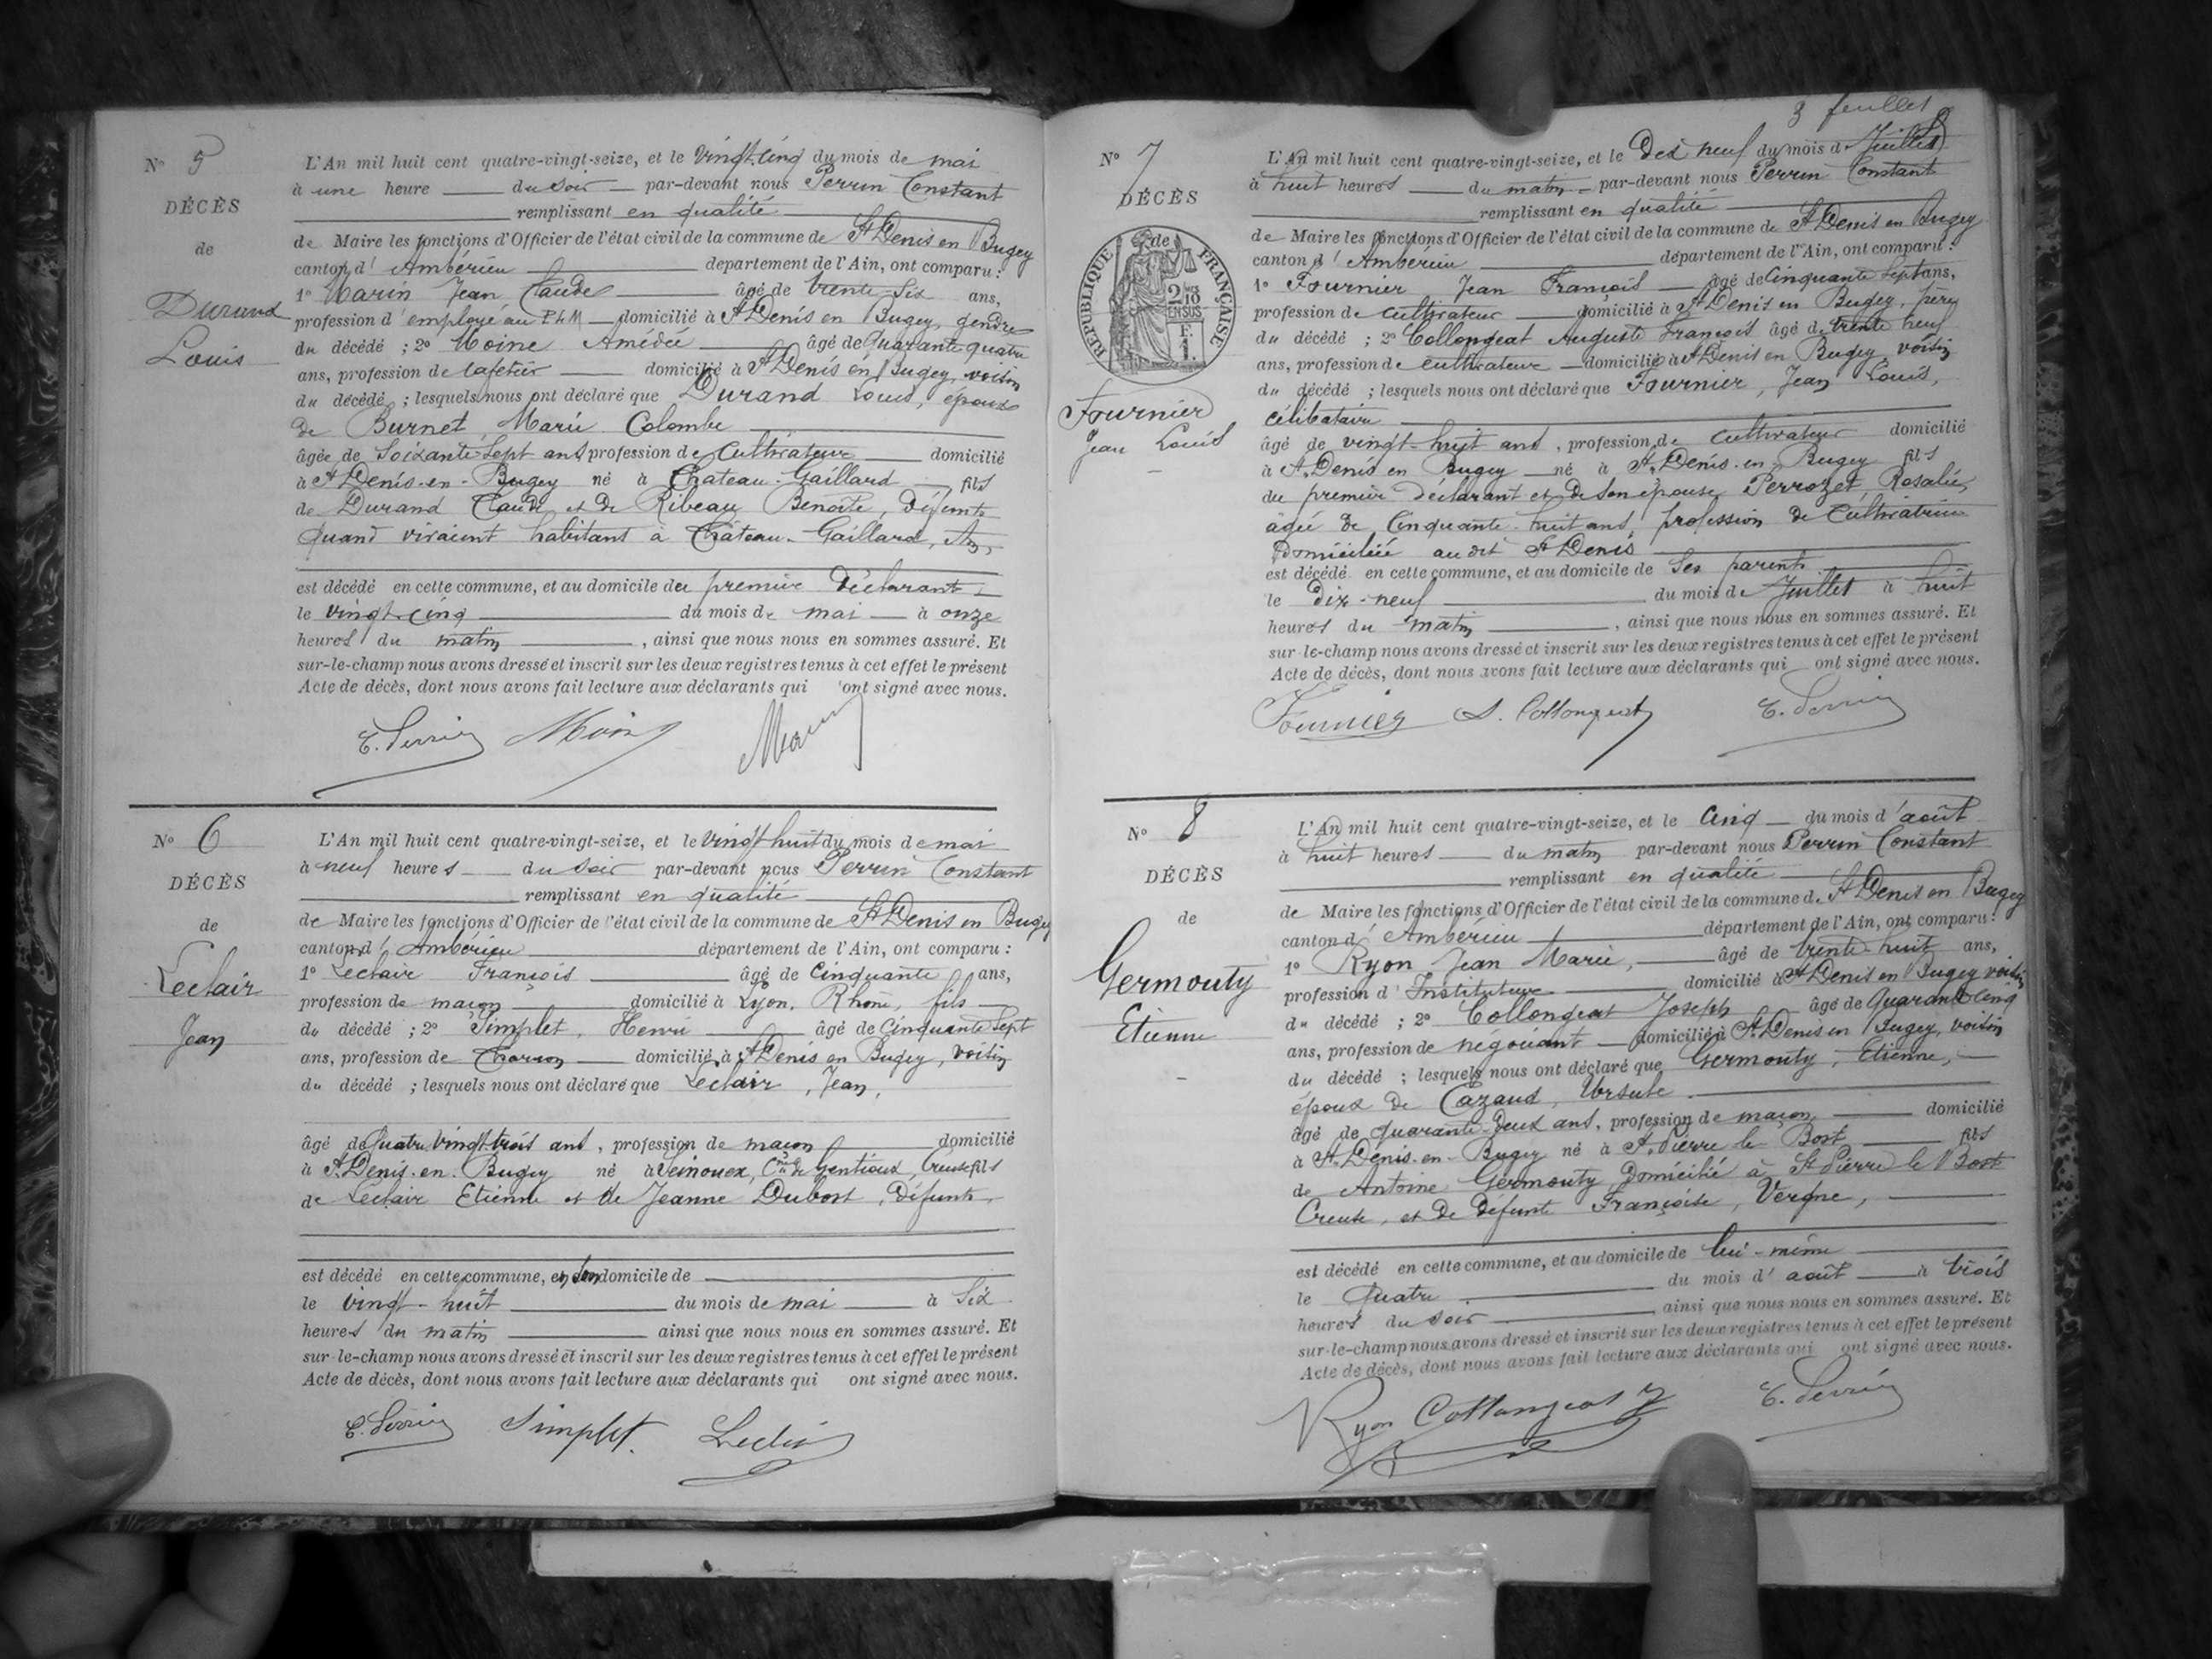 N° 5
DÉCÈS
de
Durand
Louis
L'An mil huit cent quatre-vingt-seize, et le vingt-cinq du mois de mai
à une heure du soir par-devant nous Perrin Constant
remplissant en qualité
de Maire les fonctions d'Officier de l'état civil de la commune de St Denis en Bugey
canton d' Ambérieu département de l'Ain, ont comparu :
1° Marin Jean Claude âgé de trente-six ans,
profession d'employé au PLM domicilié à St Denis en Bugey, gendre
du décédé ; 2° Moine Amédée âgé de quarante quatre
ans, profession de cafetier domicilié à St Denis en Bugey, voisin
du décédé ; lesquels nous ont déclaré que Durand Louis, époux
de Burnet Marie Colombe
âgée de soixante sept ans profession de cultivateur domicilié
à St Denis-en-Bugey né à Chateau-Gaillard fils
de Durand Claude et de Ribeau Benoite, défunts
quand vivaient habitant à Château-Gaillard, Ain,
est décédé en cette commune, et au domicile de du premier déclarant
le vingt-cinq du mois de mai à onze
heures du matin, ainsi que nous nous en sommes assuré. Et
sur-le-champ nous avons dressé et inscrit sur les deux registres tenus à cet effet le présent
Acte de décès, dont nous avons fait lecture aux déclarants qui ont signé avec nous.
C. Perrin Moine Marin
N° 6
DÉCÈS
de
Leclair
Jean
L'An mil huit cent quatre-vingt-seize, et le vingt huit du mois de mai
à neuf heures du soir par-devant nous Perrin Constant
remplissant en qualité
de Maire les fonctions d'Officier de l'état civil de la commune de St Denis en Bugey
canton d' Ambérieu département de l'Ain, ont comparu :
1° Leclair François âgé de cinquante ans,
profession de maçon domicilié à Lyon, Rhône, fils
du décédé ; 2° Simplet, Henri âgé de cinquante sept
ans, profession de charron domicilié à St Denis en Bugey, voisin
du décédé ; lesquels nous ont déclaré que Leclair, Jean,
âgé de quatre vingt trois ans, profession de maçon domicilié
à St Denis-en-Bugey né à Senouex, Cne de Gentioux Creuse fils
de Leclair Etienne et de Jeanne Dubost, défunts
est décédé en cette commune, en son domicile de
le vingt-huit du mois de mai à six
heures du matin ainsi que nous nous en sommes assuré. Et
sur-le-champ nous avons dressé et inscrit sur les deux registres tenus à cet effet le présent
Acte de décès, dont nous avons fait lecture aux déclarants qui ont signé avec nous.
C. Perrin Simplet. Leclair
3 feuillet
N° 7
DÉCÈS
de
RÉPUBLIQUE FRANÇAISE
2/10 EN SUS
Fournier
Jean Louis
L'An mil huit cent quatre-vingt-seize, et le dix neuf du mois de Juillet
à huit heures du matin par-devant nous Perrin Constant
remplissant en qualité
de Maire les fonctions d'Officier de l'état civil de la commune de St Denis en Bugey
canton d' Ambérieu département de l'Ain, ont comparu :
1° Fournier Jean François âgé de cinquante sept ans,
profession de cultivateur domicilié à St Denis en Bugey, père
du décédé ; 2° Collongeat Auguste François âgé de trente neuf
ans, profession de cultivateur domicilié à St Denis en Bugey, voisin
du décédé ; lesquels nous ont déclaré que Fournier, Jean Louis,
célibataire
âgé de vingt-huit ans, profession de cultivateur domicilié
à St Denis en Bugey né à St Denis-en-Bugey fils
du premier déclarant et de son épouse Perrozet, Rosalie,
âgée de cinquante-huit ans, profession de cultivatrice
domiciliée au dit St Denis
est décédé en cette commune, et au domicile de ses parents
le dix-neuf du mois de Juillet à huit
heures du matin, ainsi que nous nous en sommes assuré. Et
sur-le-champ nous avons dressé et inscrit sur les deux registres tenus à cet effet le présent
Acte de décès, dont nous avons fait lecture aux déclarants qui ont signé avec nous.
Fournier A. Collongeat C. Perrin
N° 8
DÉCÈS
de
Germouty
Etienne
L'An mil huit cent quatre-vingt-seize, et le cinq du mois d'août
à huit heures du matin par-devant nous Perrin Constant
remplissant en qualité
de Maire les fonctions d'Officier de l'état civil de la commune de St Denis en Bugey
canton d' Ambérieu département de l'Ain, ont comparu :
1° Ryon Jean Marie, âgé de trente-huit ans,
profession d'Instituteur domicilié à St Denis en Bugey voisin
du décédé ; 2° Collongeat Joseph âgé de quarante cinq
ans, profession de négociant domicilié à St Denis en Bugey, voisin
du décédé ; lesquels nous ont déclaré que Germouty, Etienne,
époux de Cazaud, Ursule
âgé de quarante-deux ans, profession de maçon domicilié
à St Denis-en-Bugey né à St Pierre le Bost fils
de Antoine Germouty domicilié à St Pierre le Bost
Creuse, et de défunte Françoise, Vergne,
est décédé en cette commune, et au domicile de lui-même
le quatre du mois d'août à trois
heures du soir ainsi que nous nous en sommes assuré. Et
sur-le-champ nous avons dressé et inscrit sur les deux registres tenus à cet effet le présent
Acte de décès, dont nous avons fait lecture aux déclarants qui ont signé avec nous.
Ryon Collongeat J C. Perrin